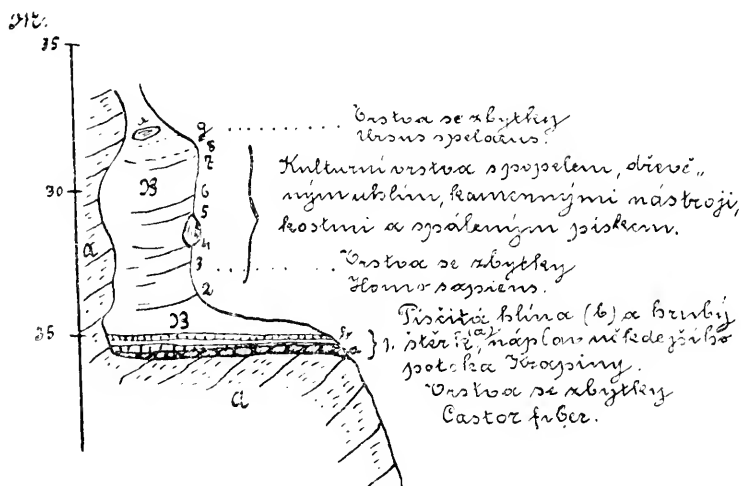 M.
35
Vrstva se zbytky
Ursus spelaeus.
9
8
7
6
5
4
3
2
Kulturní vrstva s popelem, dřevě„
ným uhlím, kamennými nástroji,
kostmi a spáleným pískem.
30
B
a
Vrstva se zbytky
Homo sapiens.
B
35
1.
Písčitá hlína (b) a hrubý
štěrk (a), náplav někdejšího
potoka Krapiny.
Vrstva se zbytky
Castor fiber.
a
a